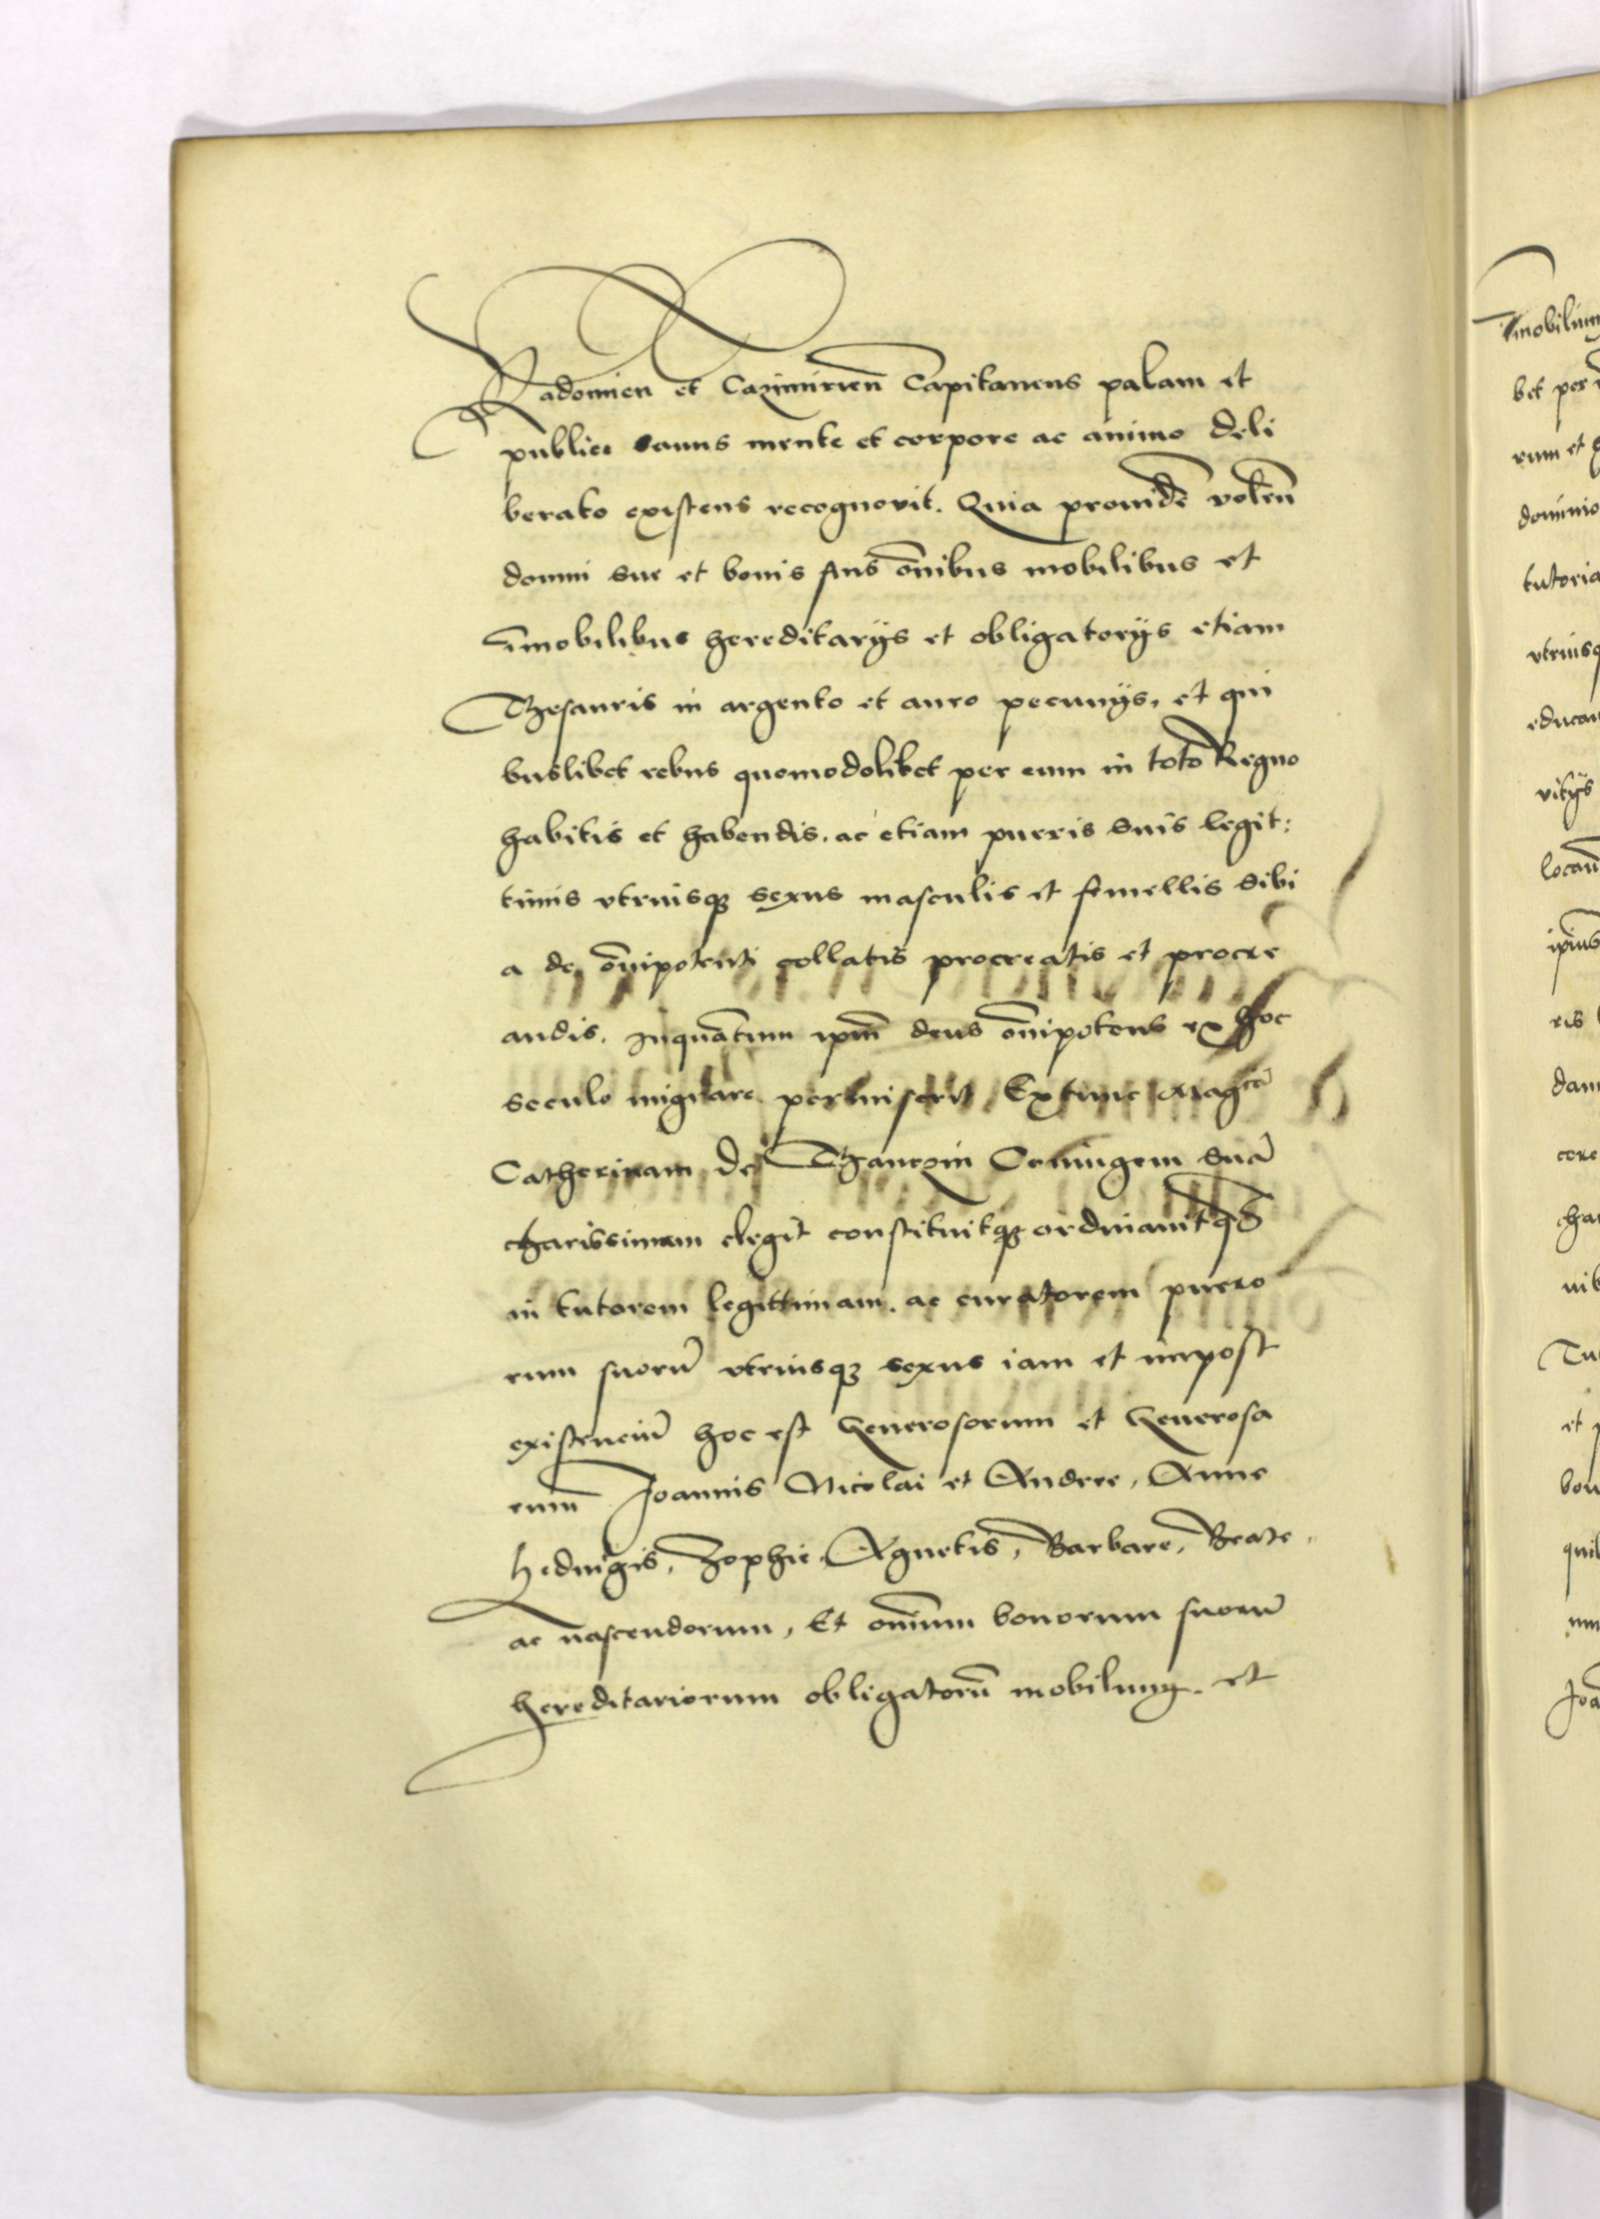 Radomien et Cazimirien Capitaneus palam et
publice sanus mente et corpore ac animo deli
berato existens recognovit. Quia providē volen̄
domui sue et bonis suis om̄ibus mobilibus et
īmobilibus hereditarijs et obligatorijs etiam
Thesauris in argento et auro pecunijs, et qui
buslibet rebus quomodolibet per eum in toto Regno
habitis et habendis. ac etiam pueris suis legit:
timis vtriusq3 sexus masculis et femellis sibi
a deo om̄ipotenti collatis procreatis et procre
andis. Inquantum ipm̄ deus om̄ipotens ex hoc
seculo migrare permiserit, Extunc Mag^{cā}
Catherinam de Thanczin Coniugem suā
charissimam elegit constituitq3 ordinauitq3
in tutorem legittimam. ac curatorem puero
rum suorū vtriusq3 sexus iam et inpost
existenciū hoc est Generosorum et Generosa
rum Joannis Nicolai et Andree, Anne
Heduigis, Zophie, Agnetis, Barbare, Beate,
ac nascendorum, Et om̄ium bonorum suorū
hereditariorum obligatorū mobilium. et
īmobilium
bet per
rum et
dominio
tutoria
vtriusq
educan
vitijs
locan̄
ip̄ius
ris
dam
cere
cha
uit
Tu
et
bon
quil
Joa